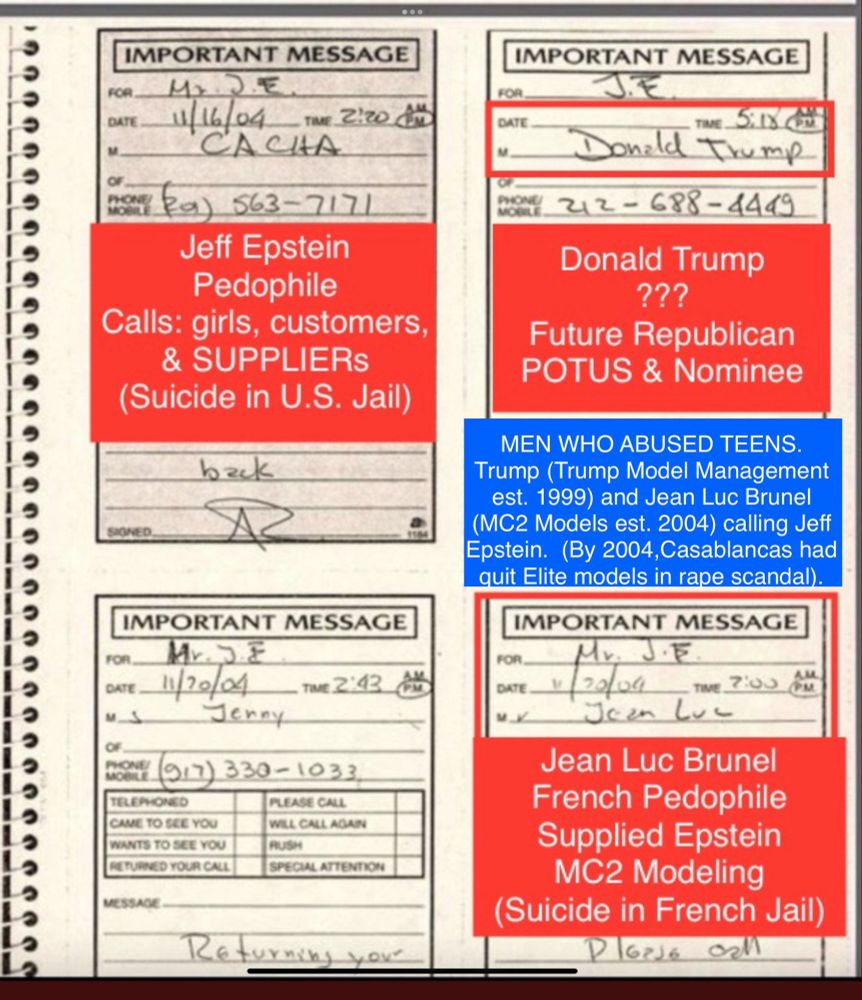 IMPORTANT MESSAGE
FOR Mr. J.E.
DATE 11/16/04 TIME 2:20 AM PM
M CACHA
OF
PHONE/ MOBILE 563-7171
Jeff Epstein
Pedophile
Calls: girls, customers,
& SUPPLIERs
(Suicide in U.S. Jail)
back
SIGNED
1184
IMPORTANT MESSAGE
FOR J.E.
DATE TIME 5:18 AM PM
M Donald Trump
OF
PHONE/ MOBILE 212-688-4449
Donald Trump
???
Future Republican
POTUS & Nominee
MEN WHO ABUSED TEENS.
Trump (Trump Model Management
est. 1999) and Jean Luc Brunel
(MC2 Models est. 2004) calling Jeff
Epstein. (By 2004,Casablancas had
quit Elite models in rape scandal).
IMPORTANT MESSAGE
FOR Mr. J.E
DATE 11/20/04 TIME 2:43 AM PM
M s Jenny
OF
PHONE/ MOBILE (917) 330-1033
TELEPHONED PLEASE CALL
CAME TO SEE YOU WILL CALL AGAIN
WANTS TO SEE YOU RUSH
RETURNED YOUR CALL SPECIAL ATTENTION
MESSAGE
Returning your
IMPORTANT MESSAGE
FOR Mr. J.E.
DATE 11/20/04 TIME 7:00 AM PM
M r Jean Luc
Jean Luc Brunel
French Pedophile
Supplied Epstein
MC2 Modeling
(Suicide in French Jail)
Please call